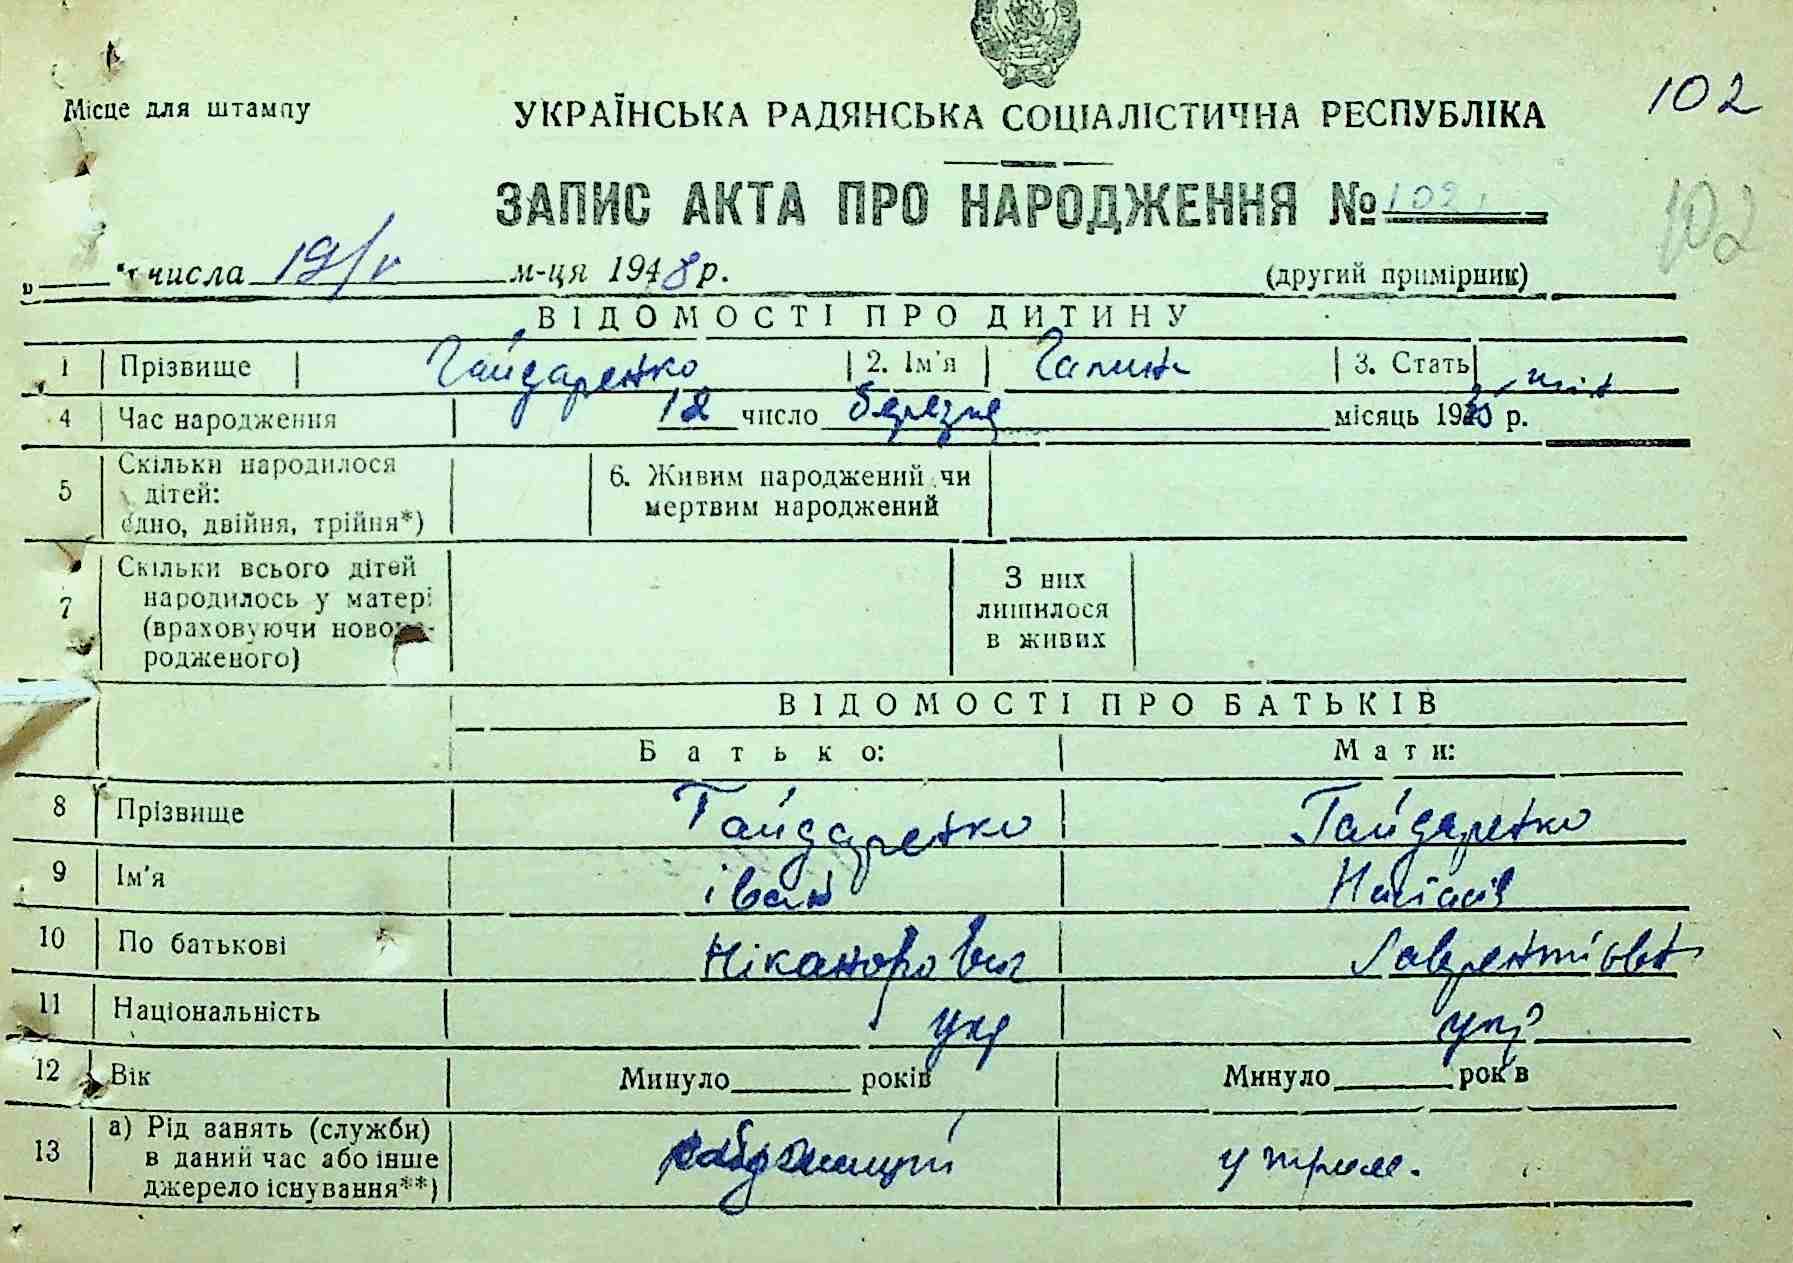 102
Місце для штампу
УКРАЇНСЬКА РАДЯНСЬКА СОЦІАЛІСТИЧНА РЕСПУБЛІКА
ЗАПИС АКТА ПРО НАРОДЖЕННЯ № 102
102
„ " числа 19/V м-ця 1948 р.
(другий примірник)
ВІДОМОСТІ ПРО ДИТИНУ
1 Прізвище Гайдаренко 2. Ім'я Галина 3. Стать
4 Час народження 12 число березня місяць 19 р.
5 Скільки народилося дітей: одно, двійня, трійня*)
6. Живим народжений чи мертвим народжений
7 Скільки всього дітей народилось у матері (враховуючи новона-родженого)
З них лишилося в живих
ВІДОМОСТІ ПРО БАТЬКІВ
Батько: Мати:
8 Прізвище Гайдаренко Гайдаренко
9 Ім'я іван
10 По батькові Ніканорович Лаврентіївна
11 Національність укр укр
12 Вік Минуло років Минуло років
13 а) Рід занять (служби) в даний час або інше джерело існування**) утрим.